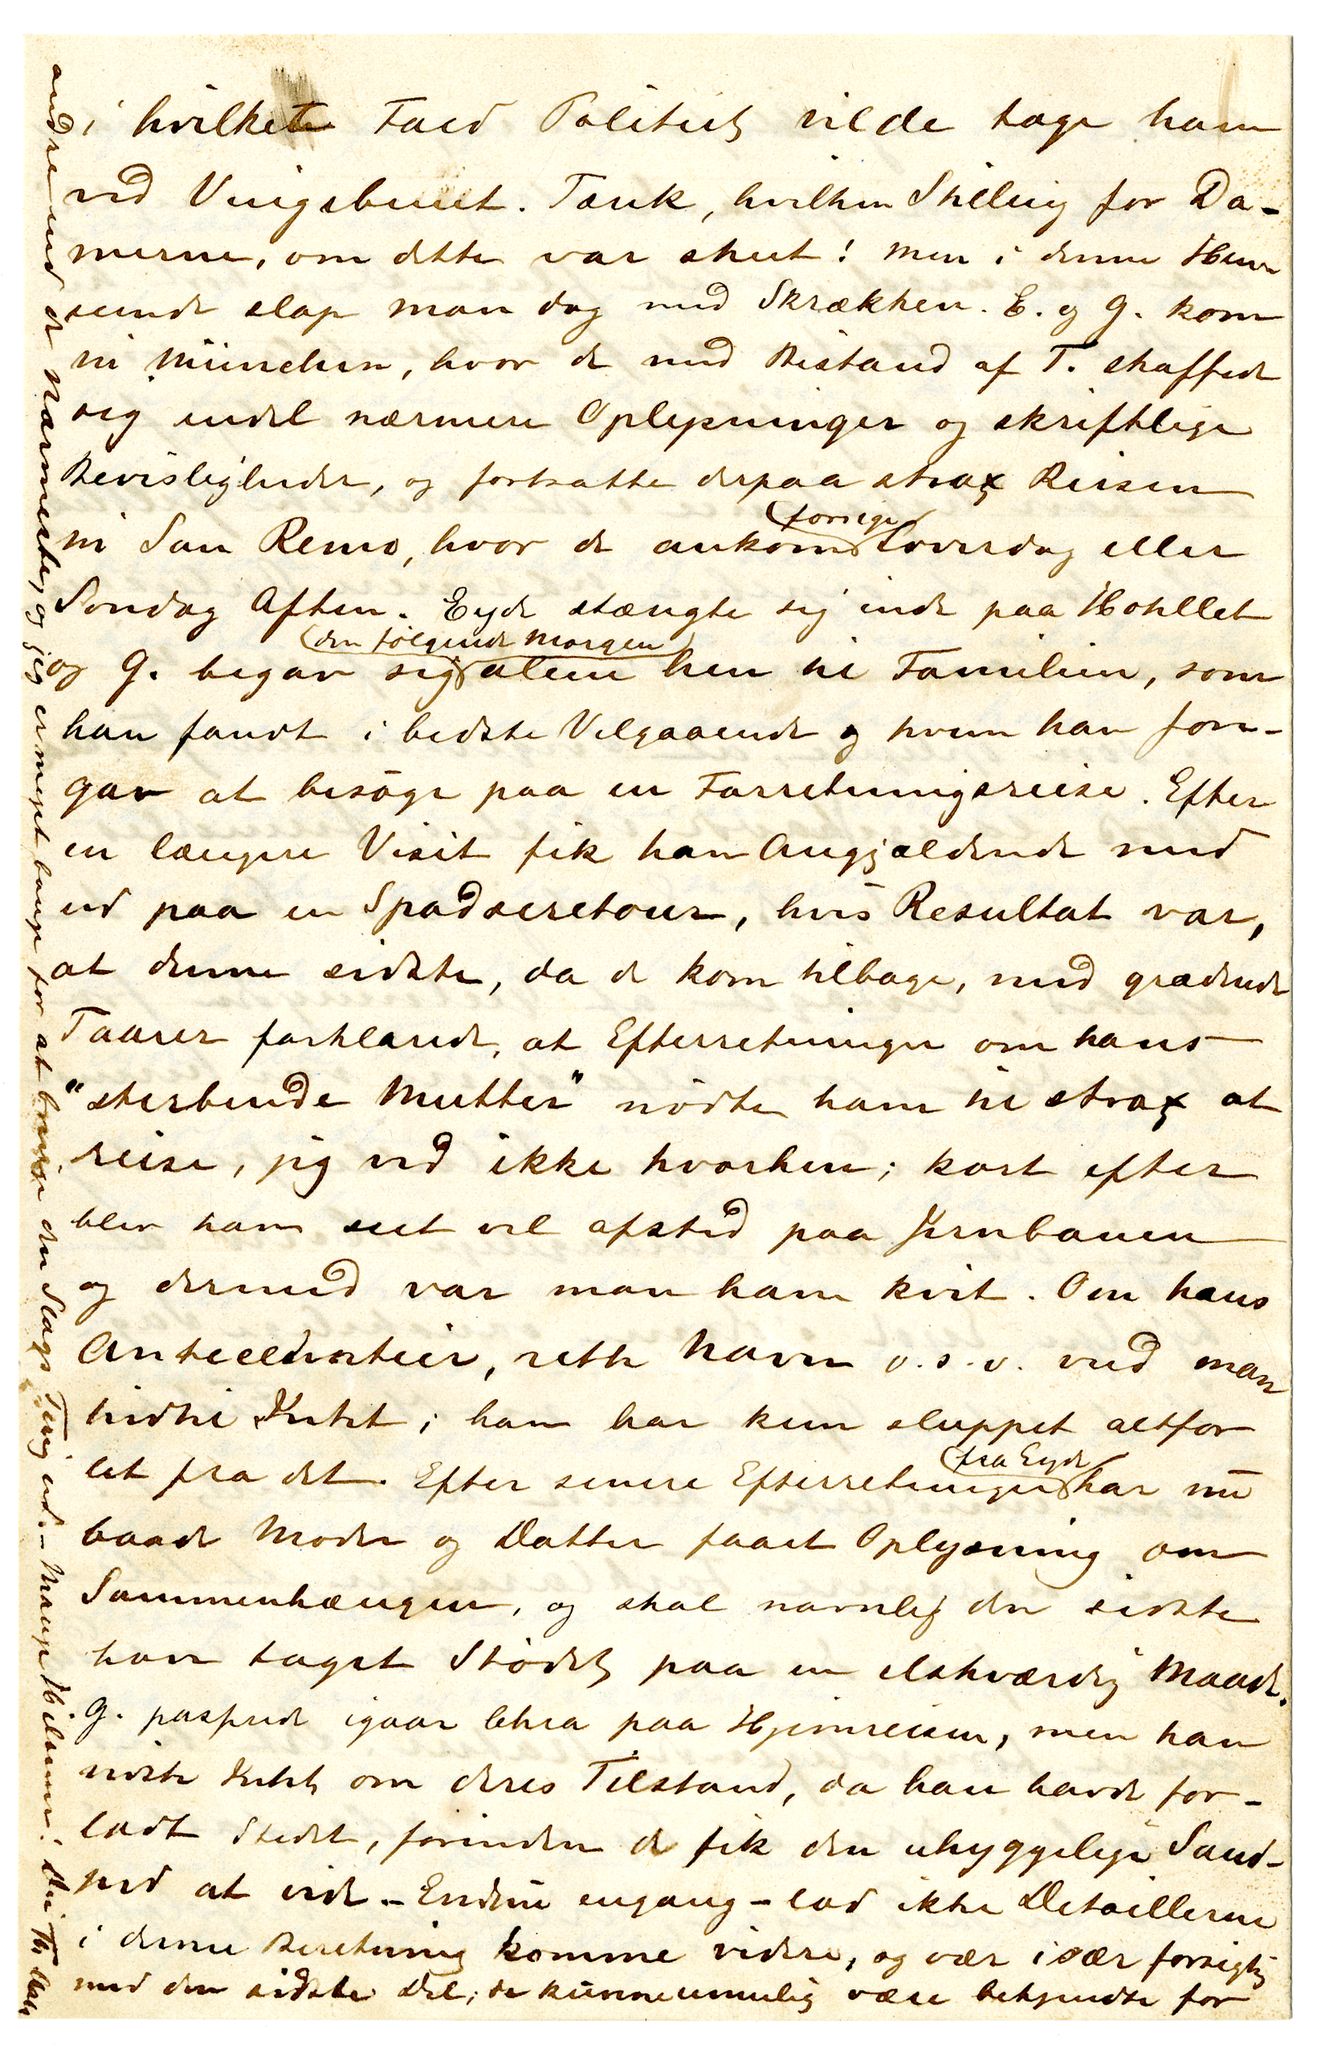 i hvilket Fald Politiet vilde tage ham
ved Vingebenet. Tænk, hvilken Stilling for Da-
merne, om dette var skeet! Men i denne Hen-
seende slap man dog med Skrækken. E. og G. kom
til München, hvor de med Bistand af T. skaffede
sig endel nærmere Oplysninger og skriftlige
Bevisligheder, og fortsatte derpaa strax Reisen
til San Remo, hvor de ankom forrige Löverdag eller
Söndag Aften. Eyde stængte sig inde paa Hotellet
og G. begav sig den følgende Morgen alene hen til Familien, som
han fandt i bedste Velgaaende og hvem han fore-
gav at besöge paa en Forretningsreise. Efter
en længere Visit fik han Angjældende med
ud paa en Spadseretour, hvis Resultat var,
at denne sidste, da de kom tilbage, med grædende
Taarer forklarede, at Efterretninger om hans
"sterbende Mutter" nödte ham til strax at
reise, jeg ved ikke hvorhen; kort efter
blev han seet vel afsted paa Jernbanen
og dermed var man ham kvit. Om hans
Antecedentier, rette Navn o.s.v. ved man
hidtil Intet; han har kun sluppet altfor
let fra det. Efter senere Efterretninger fra Eyde har nu
baade Moder og Datter faaet Oplysning om
Sammenhængen, og skal navnlig den sidste
have taget Stödet paa en elskværdig Maade.
G. passerede igaar paa Hjemreisen, men han
vidste Intet om deres Tilstand, da han havde for-
ladt Stedet, forinden de fik den uhyggelige Sand-
hed at vide. - Endnu engang - lad ikke Detaillerne
i denne Beretning komme videre, og vær især forsigtig
med den sidste Del; de kunne umulig være bekjendte for
andre end de Nærmeste, og jeg er meget bange for at bringe den Slags Ting ud. - Mange Hilsener! Din Th.